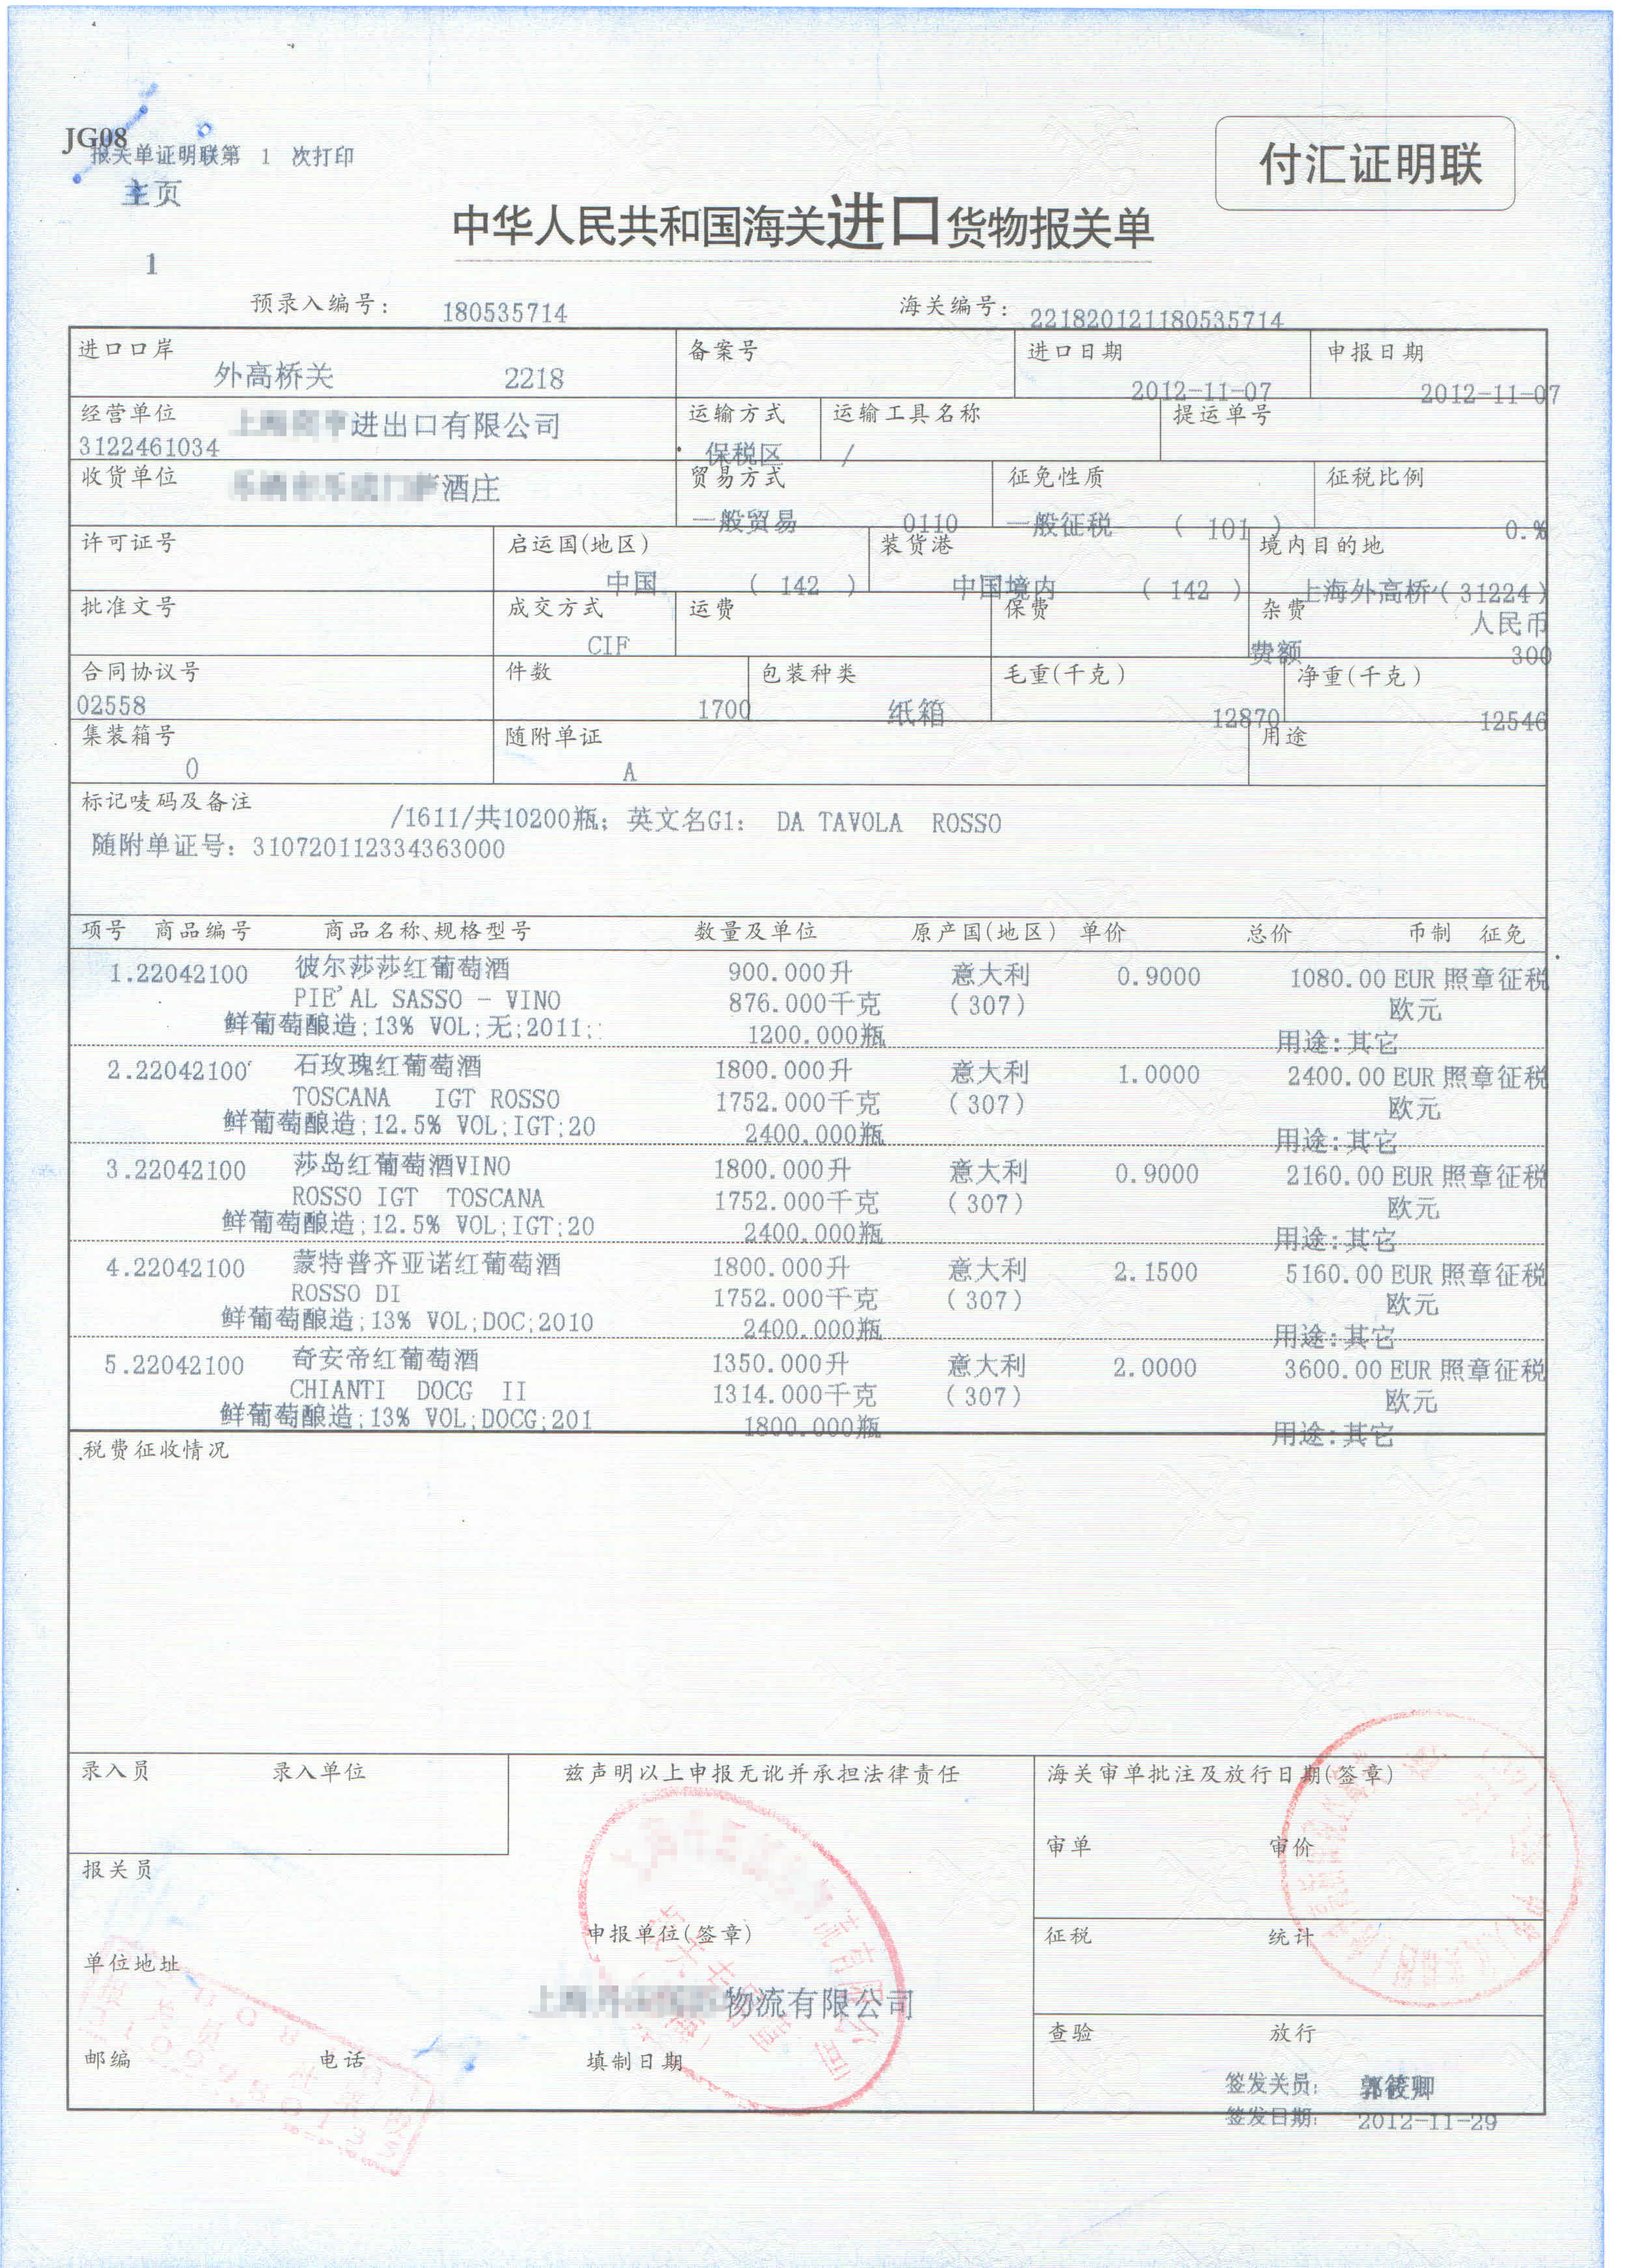 JG08
报关单证明联第 1 次打印
主页
1
付汇证明联
中华人民共和国海关进口货物报关单
预录入编号: 180535714 海关编号: 221820121180535714
进口口岸 备案号 进口日期 申报日期
外高桥关 2218 2012-11-07 2012-11-07
经营单位 进出口有限公司 运输方式 运输工具名称 提运单号
3122461034 保税区 /
收货单位 酒庄 贸易方式 征免性质 征税比例
一般贸易 0110 一般征税 ( 101 ) 0.%
许可证号 启运国(地区) 装货港 境内目的地
中国 ( 142 ) 中国境内 ( 142 ) 上海外高桥 ( 31224 )
批准文号 成交方式 运费 保费 杂费 人民币
CIF 费额 300
合同协议号 件数 包装种类 毛重(千克) 净重(千克)
02558 1700 纸箱 12870 12546
集装箱号 随附单证 用途
0 A
标记唛码及备注
/1611/共10200瓶; 英文名G1: DA TAVOLA ROSSO
随附单证号: 310720112334363000
项号 商品编号 商品名称、规格型号 数量及单位 原产国(地区) 单价 总价 币制 征免
1.22042100 彼尔莎莎红葡萄酒 900.000升 意大利 0.9000 1080.00 EUR 照章征税
PIE'AL SASSO - VINO 876.000千克 (307) 欧元
鲜葡萄酿造;13% VOL;无;2011; 1200.000瓶 用途:其它
2.22042100 石玫瑰红葡萄酒 1800.000升 意大利 1.0000 2400.00 EUR 照章征税
TOSCANA IGT ROSSO 1752.000千克 (307) 欧元
鲜葡萄酿造;12.5% VOL;IGT;20 2400.000瓶 用途:其它
3.22042100 莎岛红葡萄酒VINO 1800.000升 意大利 0.9000 2160.00 EUR 照章征税
ROSSO IGT TOSCANA 1752.000千克 (307) 欧元
鲜葡萄酿造;12.5% VOL;IGT;20 2400.000瓶 用途:其它
4.22042100 蒙特普齐亚诺红葡萄酒 1800.000升 意大利 2.1500 5160.00 EUR 照章征税
ROSSO DI 1752.000千克 (307) 欧元
鲜葡萄酿造;13% VOL;DOC;2010 2400.000瓶 用途:其它
5.22042100 奇安帝红葡萄酒 1350.000升 意大利 2.0000 3600.00 EUR 照章征税
CHIANTI DOCG II 1314.000千克 (307) 欧元
鲜葡萄酿造;13% VOL;DOCG;201 1800.000瓶 用途:其它
税费征收情况
录入员 录入单位 兹声明以上申报无讹并承担法律责任 海关审单批注及放行日期(签章)
审单 审价
报关员
申报单位(签章) 征税 统计
单位地址
物流有限公司
查验 放行
邮编 电话 填制日期
签发关员: 郭筱卿
签发日期: 2012-11-29